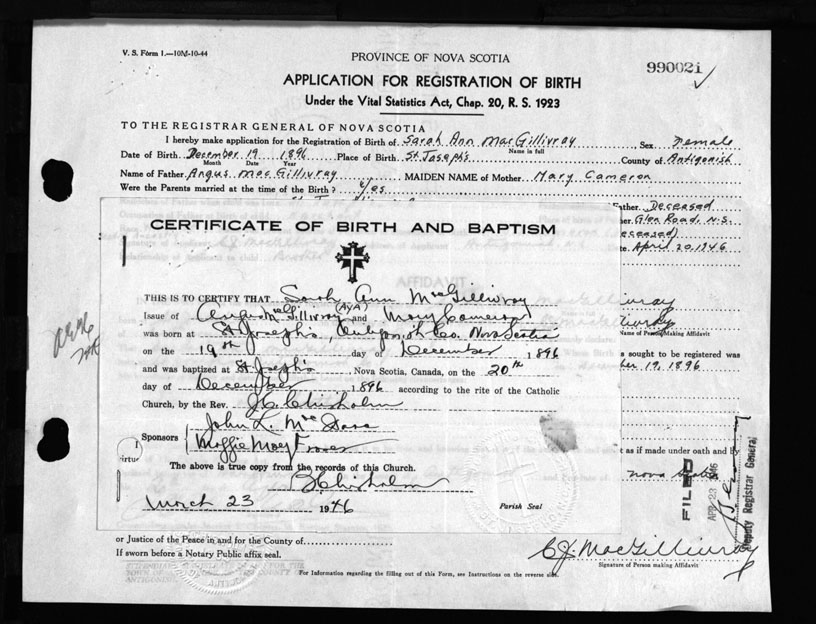 V. S. Form 1.—10M-10-44
PROVINCE OF NOVA SCOTIA
990021
APPLICATION FOR REGISTRATION OF BIRTH
Under the Vital Statistics Act, Chap. 20, R. S. 1923
TO THE REGISTRAR GENERAL OF NOVA SCOTIA
I hereby make application for the Registration of Birth of Sarah Ann MacGillivray Sex Female
Name in full
Date of Birth December 19 1896 Place of Birth St Joseph's County of Antigonish
Month Date Year
Name of Father Angus MacGillivray MAIDEN NAME of Mother Mary Cameron
Were the Parents married at the time of the Birth? Yes
Father. Deceased
Glen Road, N.S.
April 20, 1946
CERTIFICATE OF BIRTH AND BAPTISM
THIS IS TO CERTIFY THAT Sarah Ann McGillivray
Issue of Angus McGillivray (AYA) and Mary Cameron
was born at St Joseph's, Antigonish Co. Nova Scotia
on the 19th day of December 1896
and was baptized at St Joseph's, Nova Scotia, Canada, on the 20th
day of December 1896 according to the rite of the Catholic
Church, by the Rev. J.C. Chisholm
John L. Mc
Sponsors
The above is true copy from the records of this Church.
Chisholm
March 23 1946
Parish Seal
AFFIDAVIT
Name of Person Making Affidavit
s sought to be registered was
19, 1896
t as if made under oath and by
Nova Scotia
FILED
APR 23 1946
Deputy Registrar General
or Justice of the Peace in and for the County of
If sworn before a Notary Public affix seal.
C.J. MacGillivray
Signature of Person making Affidavit
For Information regarding the filling out of this Form, see Instructions on the reverse side.